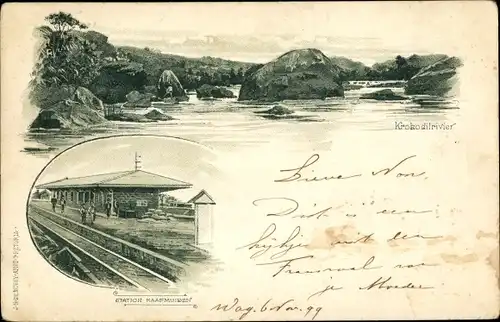 Krokodilrivier
Lieve Non,
Dit is een
kijkje uit den
Transvaal van
je Moeder
STATION KAAPMUIDEN
6 Nov. 99